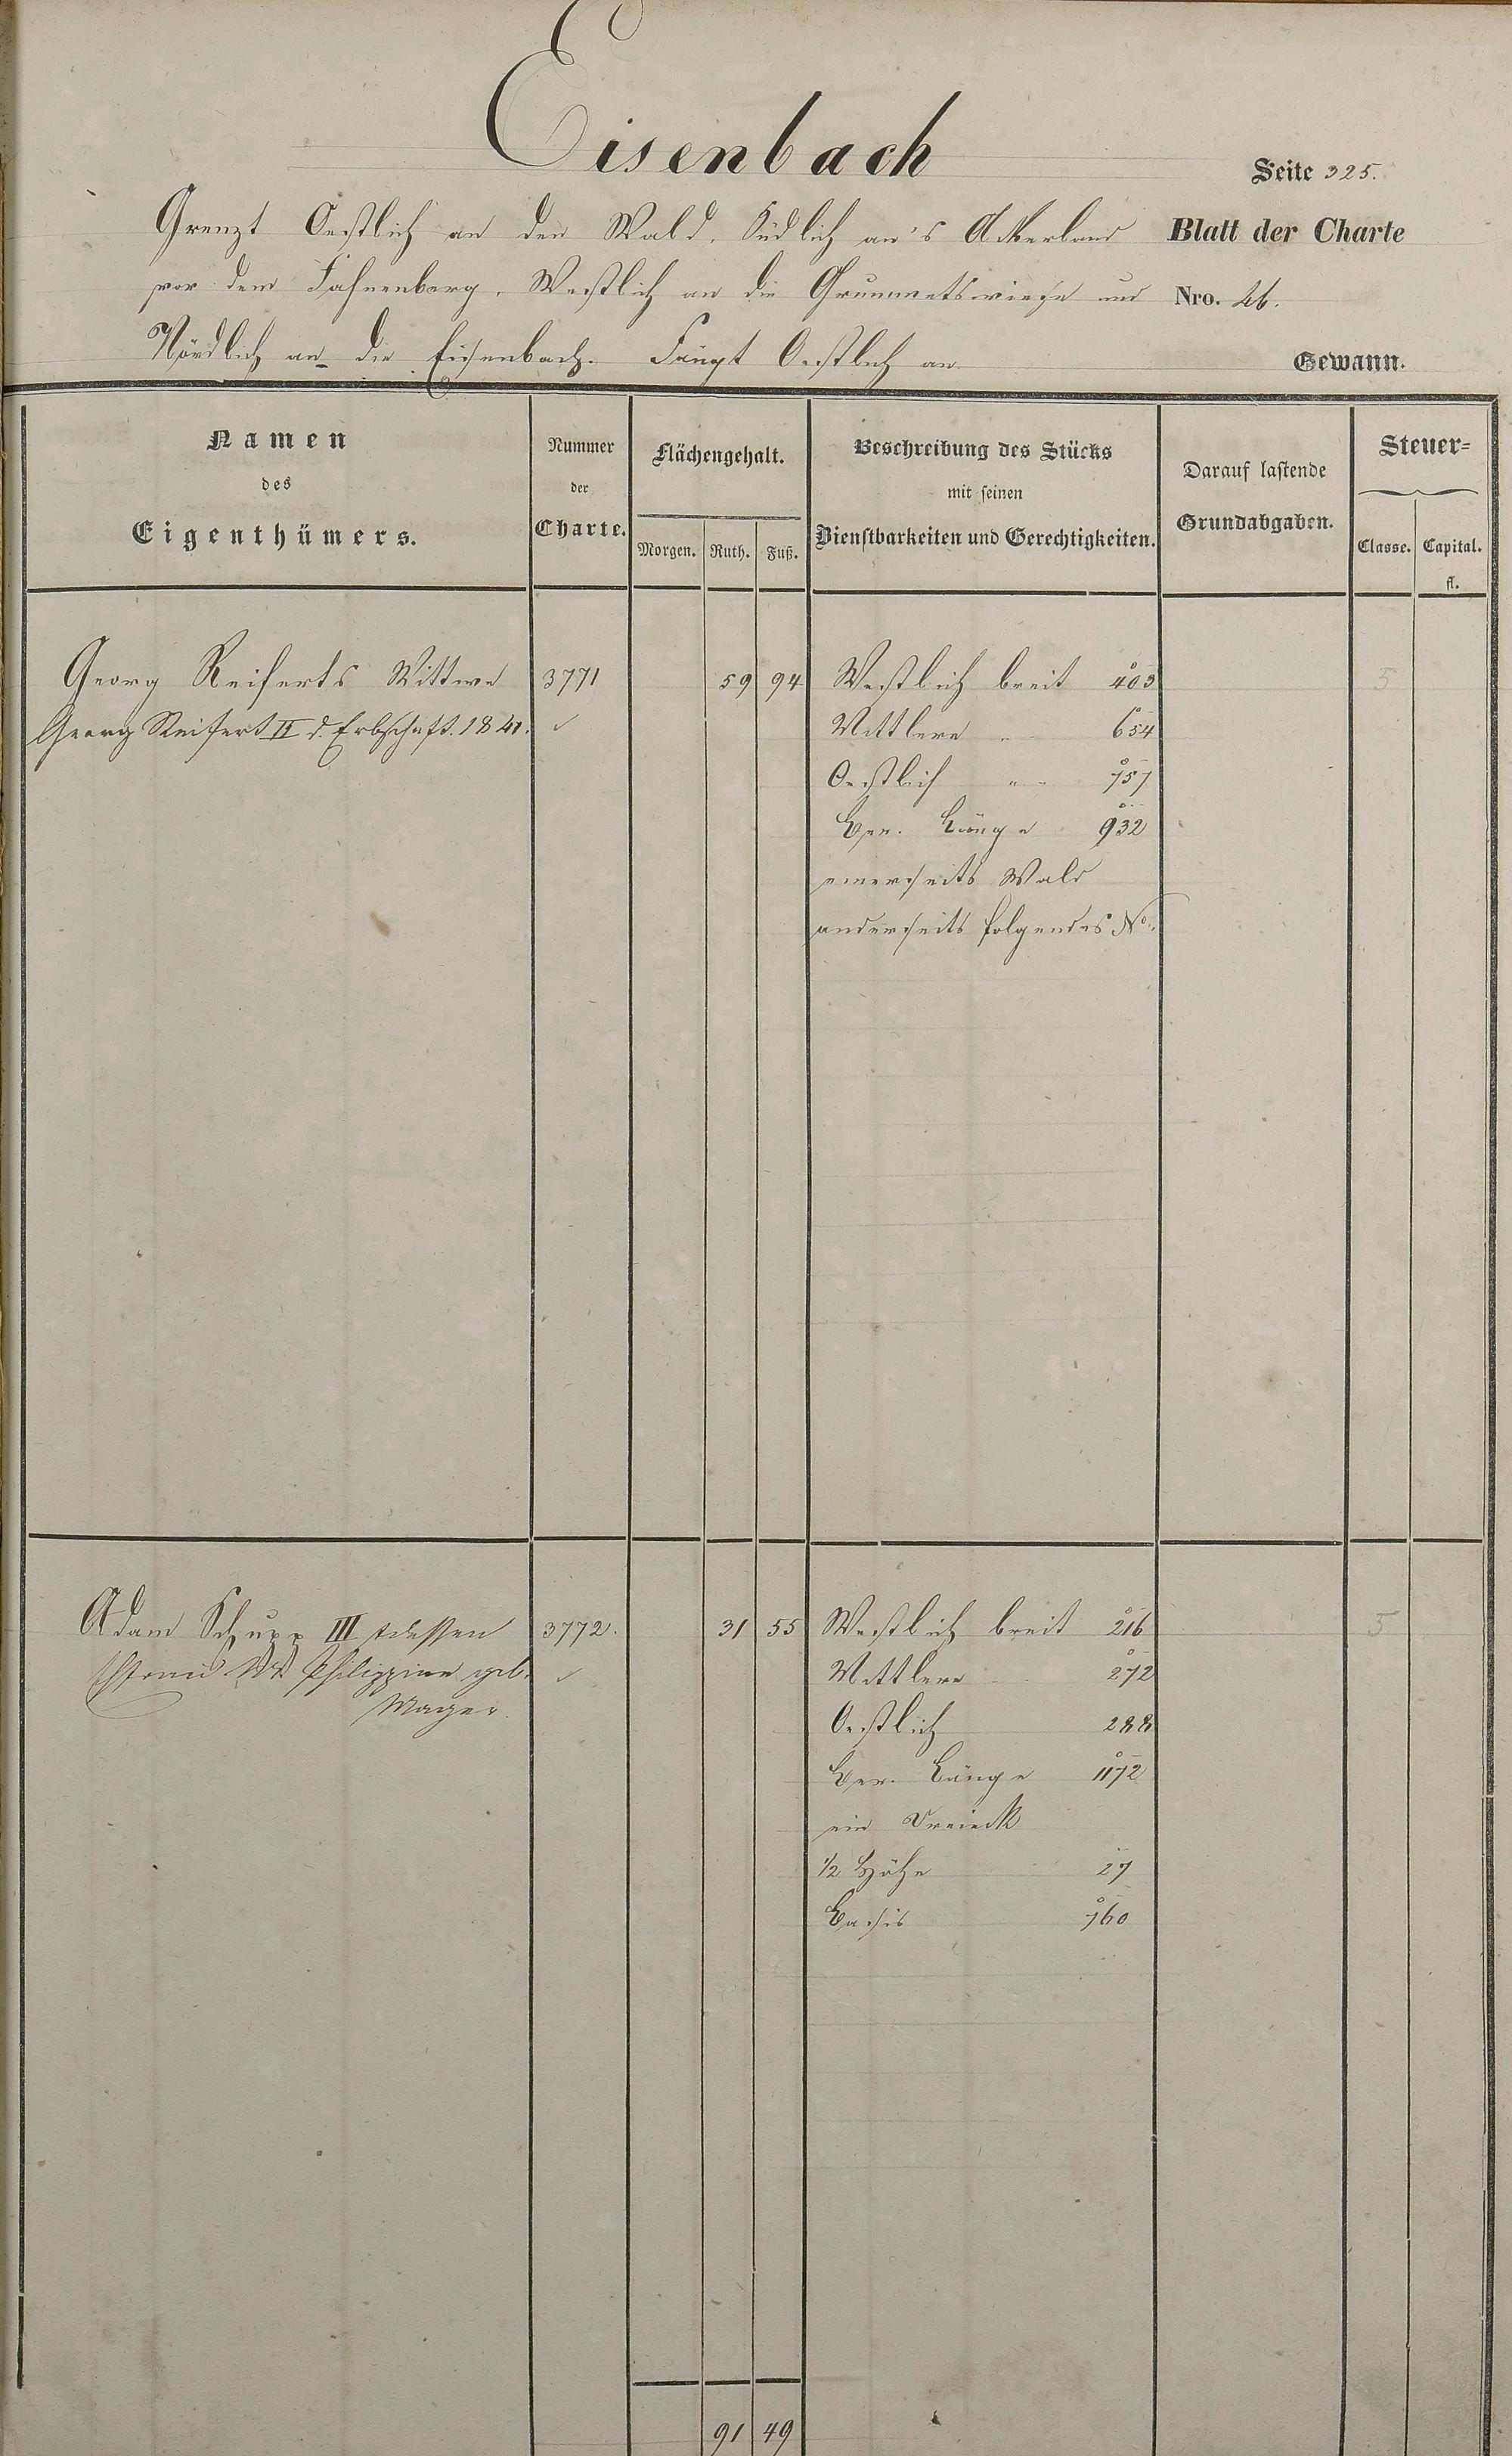 Eisenbach
Seite 325.
Grenzt Oestlich an den Wald. Südlich an's Ackerland
Blatt der Charte
vor dem Fahnenberg. Westlich an die Grummetswiese und
Nro. 26.
Nördlich an die Eisenbach. Fängt Oestlich an
Gewann.
Namen
des
Eigenthümers.
Nummer
der
Charte.
Flächengehalt.
Morgen. Ruth. Fuß.
Beschreibung des Stücks
mit seinen
Dienstbarkeiten und Gerechtigkeiten.
Darauf lastende
Grundabgaben.
Steuer=
Classe. Capital.
fl.
Georg Reiferts Wittwe 3771 59 94 Westlich breit 403 5
Georg Reifert II d. Erbschaft. 1841. ✓ Mittlere " 654
Oestlich " 757
Ber. Länge 932
einerseits Wald
anderseits folgendes No.
Adam Schupp III dessen 3772. 31 55 Westlich breit 216 5
Wt. Philippine geb. ✓ Mittlere 272
Mager. Oestlich 288
Ber. Länge 1172
ein Dreieck
1/2 Höhe 27
Basis 760
91 49